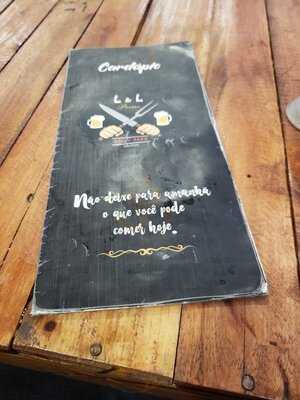 Cardápio
L & L
Não deixe para amanha
o que você pode
comer hoje.